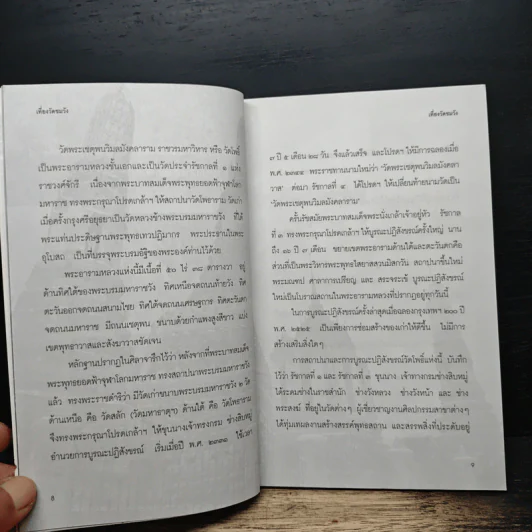 เที่ยงวัดชมวัง
วัดพระเชตุพนวิมลมังคลาราม ราชวรมหาวิหาร หรือ วัดโพธิ์
เป็นพระอารามหลวงชั้นเอกและเป็นวัดประจำรัชกาลที่ ๑ แห่ง
ราชวงศ์จักรี เนื่องจากพระบาทสมเด็จพระพุทธยอดฟ้าจุฬาโลก
มหาราช ทรงพระกรุณาโปรดเกล้าฯ ให้สถาปนาวัดโพธาราม วัดเก่า
เมื่อครั้งกรุงศรีอยุธยาเป็นวัดหลวงข้างพระบรมมหาราชวัง ที่ใต้
พระแท่นประดิษฐานพระพุทธเทวปฏิมากร พระประธานในพระ
อุโบสถ เป็นที่บรรจุพระบรมอัฐิของพระองค์ท่านไว้ด้วย
พระอารามหลวงแห่งนี้มีเนื้อที่ ๕๐ ไร่ ๓๘ ตารางวา อยู่
ด้านทิศใต้ของพระบรมมหาราชวัง ทิศเหนือจดถนนท้ายวัง ทิศ
ตะวันออกจดถนนสนามไชย ทิศใต้จดถนนเศรษฐการ ทิศตะวันตก
จดถนนมหาราช มีถนนเชตุพน ขนาบด้วยกำแพงสูงสีขาว แบ่ง
เขตพุทธาวาสและสังฆาวาสชัดเจน
หลักฐานปรากฏในศิลาจารึกไว้ว่า หลังจากที่พระบาทสมเด็จ
พระพุทธยอดฟ้าจุฬาโลกมหาราช ทรงสถาปนาพระบรมมหาราชวัง
แล้ว ทรงพระราชดำริว่า มีวัดเก่าขนาบพระบรมมหาราชวัง ๒ วัด
ด้านเหนือ คือ วัดสลัก (วัดมหาธาตุฯ) ด้านใต้ คือ วัดโพธาราม
จึงทรงพระกรุณาโปรดเกล้าฯ ให้ขุนนางเจ้าทรงกรม ช่างสิบหมู่
อำนวยการบูรณะปฏิสังขรณ์ เริ่มเมื่อปี พ.ศ. ๒๓๓๑ ใช้เวลา
๘
เที่ยงวัดชมวัง
๗ ปี ๕ เดือน ๒๘ วัน จึงแล้วเสร็จ และโปรดฯ ให้มีการฉลองเมื่อ
พ.ศ. ๒๓๔๔ พระราชทานนามใหม่ว่า “วัดพระเชตุพนวิมลมังคลา
วาส” ต่อมา รัชกาลที่ ๔ ได้โปรดฯ ให้เปลี่ยนท้ายนามวัดเป็น
“วัดพระเชตุพนวิมลมังคลาราม”
ครั้นรัชสมัยพระบาทสมเด็จพระนั่งเกล้าเจ้าอยู่หัว รัชกาล
ที่ ๓ ทรงพระกรุณาโปรดเกล้าฯ ให้บูรณะปฏิสังขรณ์ครั้งใหญ่ นาน
ถึง ๑๖ ปี ๗ เดือน ขยายเขตพระอารามด้านใต้และตะวันตกคือ
ส่วนที่เป็นพระวิหารพระพุทธไสยาสสวนมิสกวัน สถาปนาขึ้นใหม่
พระมณฑป ศาลาการเปรียญ และ สระจระเข้ บูรณะปฏิสังขรณ์
ใหม่เป็นโบราณสถานในพระอารามหลวงที่ปรากฏอยู่ทุกวันนี้
ในกาบูรณะปฏิสังขรณ์ครั้งล่าสุดเมื่อฉลองกรุงเทพฯ ๒๐๐ ปี
พ.ศ. ๒๕๒๕ เป็นเพียงการซ่อมสร้างของเก่าให้ดีขึ้น ไม่มีการ
สร้างเสริมสิ่งใดๆ
การสถาปนาและการบูรณะปฏิสังขรณ์วัดโพธิ์แห่งนี้ บันทึก
ไว้ว่า รัชกาลที่ ๑ และรัชกาลที่ ๓ ขุนนาง เจ้าทางกรมช่างสิบหมู่
ได้ระดมช่างในราชสำนัก ช่างวังหลวง ช่างวังหน้า และ ช่าง
พระสงฆ์ ที่อยู่ในวัดต่างๆ ผู้เชี่ยวชาญงานศิลปกรรมสาขาต่างๆ
ได้ทุ่มเทผลงานสร้างสรรค์พุทธสถาน และสรรพสิ่งที่ประดับอยู่
๙